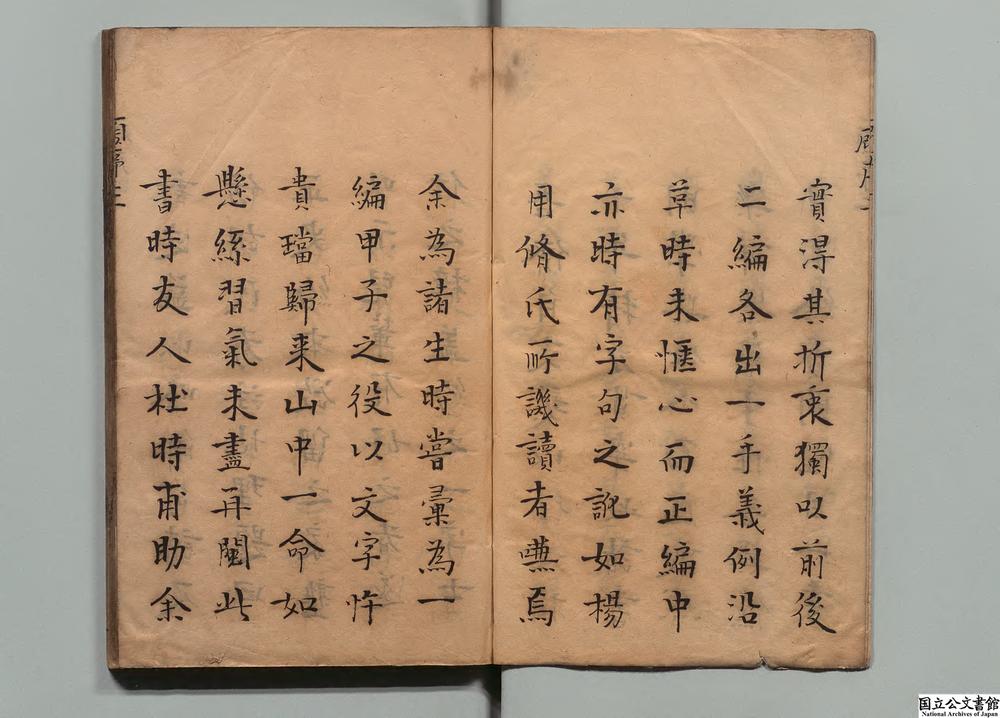 實淂其折衷獨以前後
二編各出一手義例沿
草時未愜心而正編中
亦時有字句之訛如楊
用脩氏所譏讀者嗛焉
余為諸生時嘗彚為一
編甲子之役以文字忤
貴璫歸来山中一命如
懸絲習氣未盡再閱此
書時友人杜時甫助余
国立公文書館
National Archives of Japan